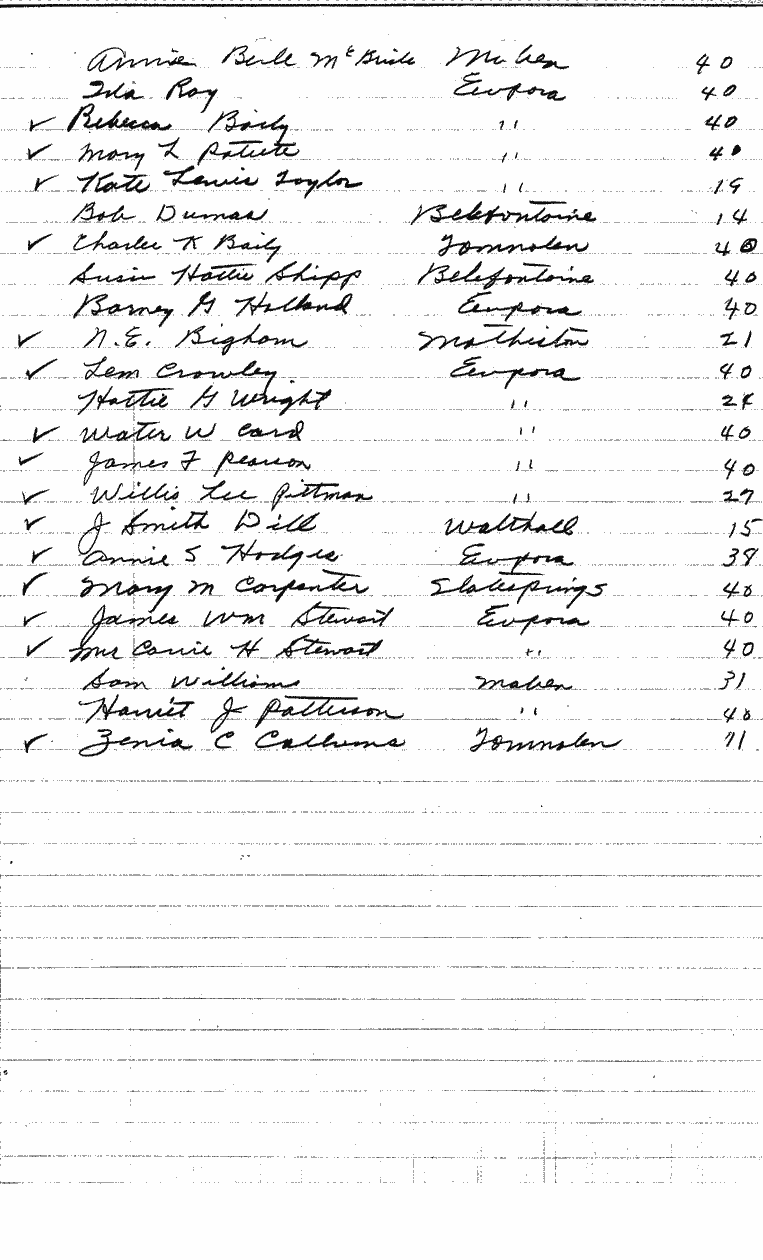 Annie Belle McBride Maben 40
Ida Ray Eupora 40
✓ Rebecca Baily " 40
✓ Mary L Patute " 40
✓ Kate Lewis Taylor " 19
Bob Dumas Bellefontaine 14
✓ Charlee K Baily Tomnolen 40
Susie Hattie Shipp Bellefontaine 40
Barney G Holland Eupora 40
✓ N.E. Bigham Mathiston 21
✓ Lem Crowley Eupora 40
Hattie G Wright " 24
✓ Water W Card " 40
✓ James F Pearson " 40
✓ Willis Lee Pittman " 27
✓ J Smith Dill Walthall 15
✓ Annie S Hodges Eupora 38
✓ Mary M Carpenter Slatesprings 40
✓ James Wm Stewart Eupora 40
✓ Mrs Carrie H Stewart " 40
Sam Williams Maben 31
Harriet J Patterson " 40
✓ Zenia C Calhoun Tomnolen 71